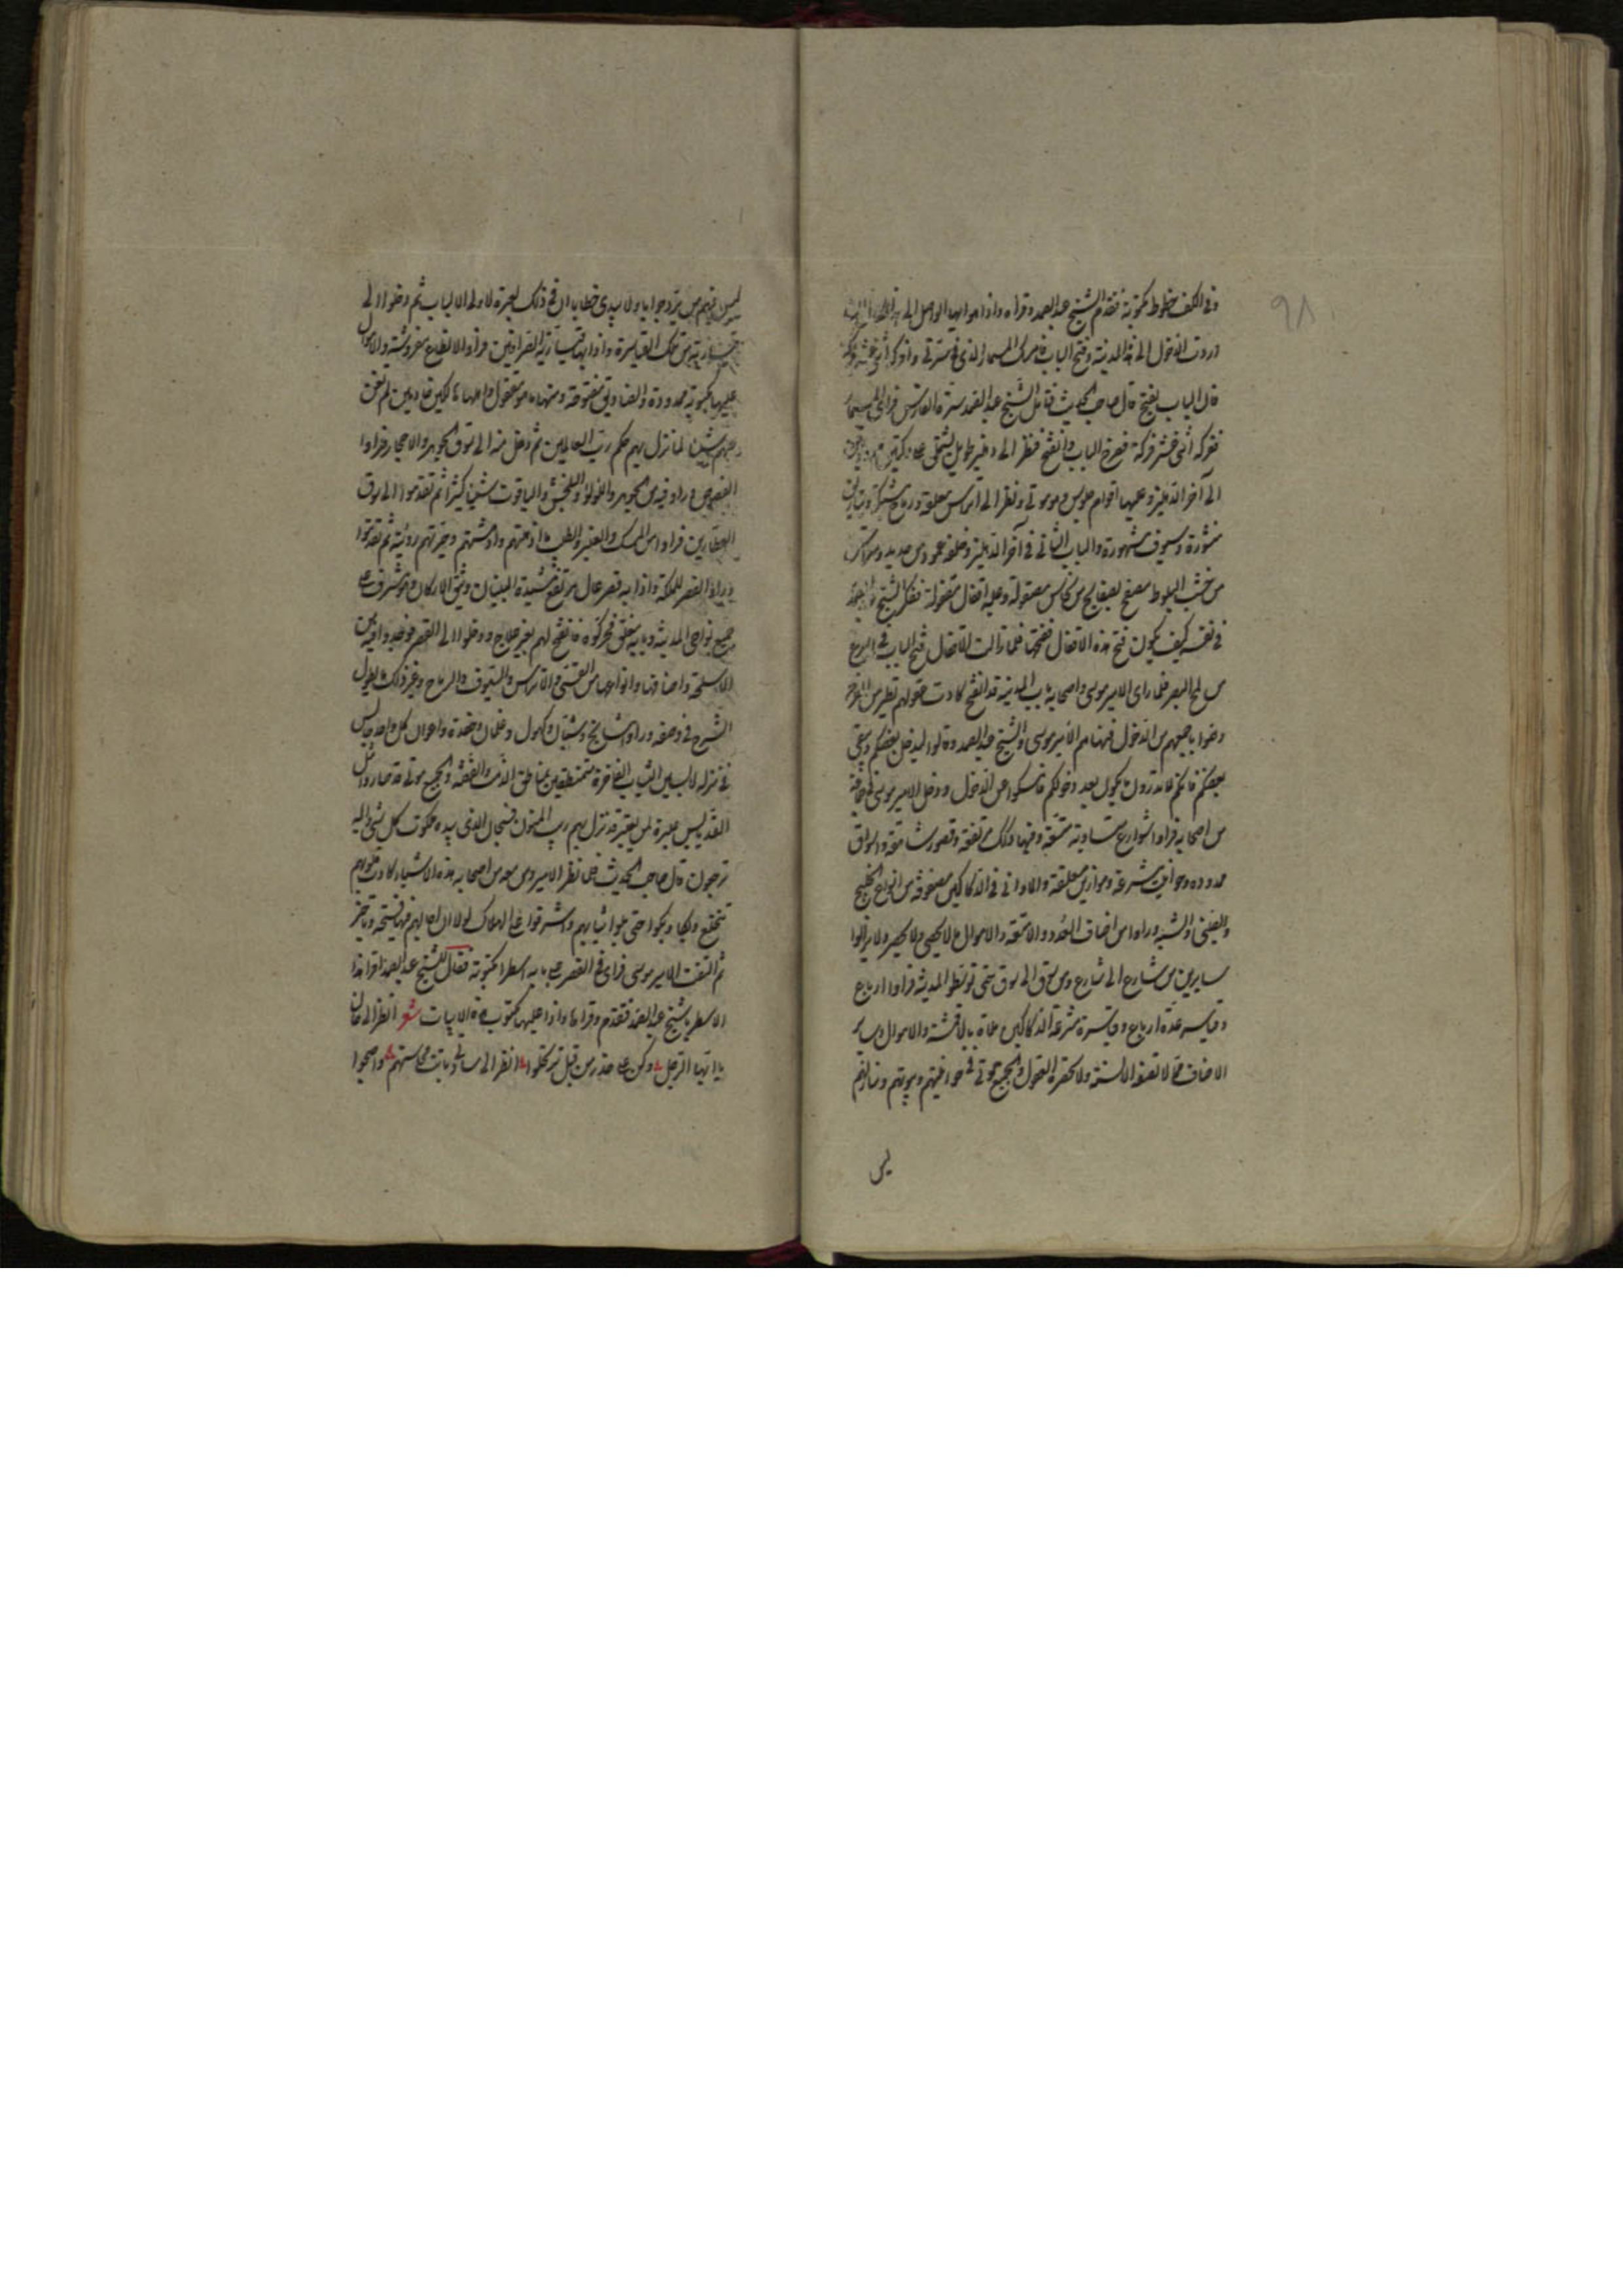 وفى الكف خطوط مكتوبة فتقدم الشيخ عبد الصمد وقراه واذا هو ايها الواصل الى
اردت الدخول الى هذا المدينة وفتح الباب فامرك المسمار الذى فى سرتى وافركه اثنى عشر فركة
فان الباب يفتح قال صاحب الحديث فتامل الشيخ عبد الصمد سرة الفارس فراى المسمار
ففركه اثنى عشر فركة فصرخ الباب وانفتح فنظر الى دهليز طويل يشتمل على دكتين
الى آخر الدهليز وعليها اقوام جلوس وهم موتى ونظر الى اتراس معلقة ورماح مشتبكة
منشورة وسيوف مشهورة والباب الثانى فى آخر الدهليز وخلفه عمود من حديد
من خشب البلوط مصفح بصفائح من نحاس مصقولة وعليه اقفال مقفولة ففكر الشيخ
فى نفسه كيف يكون فتح هذه الاقفال ففتحها فلما زالت الاقفال فتح الباب فى اسرع
من لمح البصر فلما راى الامير موسى واصحابه باب المدينة قد انفتح كادت عقولهم تطير من الفرح
وهموا باجمعهم من الدخول فنهاهم الامير موسى والشيخ عبد الصمد وقالوا ليدخل بعضكم ويبقى
بعضكم فانكم لا تدرون ما يكون بعد دخولكم فامسكوا عن الدخول ودخل الامير موسى فى جماعة
من اصحابه فراوا شوارع متساوية متسقة وفيها دكك مرتفعة وقصور شامخة واسواق
ممدودة وحوانيت مشرعة وموازين معلقة والاوانى فى الدكاكين مصفوفة من انواع الخليج
والصينى والشبه وراوا من اصناف العدد والامتعة والاموال ما لا يحصى ولا يحصر ولا يزالوا
سايرين من شارع الى شارع ومن سوق الى سوق حتى توسطوا المدينة فراوا ارباع
وقياسر عدة ارباع وقياسرة مشرعة الدكاكين ملاة بالاقمشة والاموال وساير
الاصناف مما لا تصفه الالسنة ولا تحصره العقول والجميع موتى فى حوانيتهم وبيوتهم ومنازلهم
ليس
ليس فيهم من يرد جوابا ولا يبدى خطابا ان فى ذلك لعبرة لاولى الالباب ثم دخلوا الى
قيسارية من تلك القياسرة واذا بها قيسارية الصرافين فراوا الانطاع مفروشة والاموال
عليها مكبوبة ممدودة والصناديق مفتوحة ومنها ما هو مقفول واصحابها كلهم خامدين لم تغن
عنهم شيئا لما نزل بهم حكم رب العالمين ثم دخل منه الى سوق الجوهر والاحجار فراوا
الفصوص وراوا فيه من الجوهر واللولؤ والبلخش والياقوت شيئا كثيرا ثم تقدموا الى سوق
العطارين فراوا من المسك والعنبر والطيب ما اذهلهم وادهشتهم وحيرتهم رويته ثم تقدموا
وراوا القصر للملكة واذا به قصر عال مرتفع مشيدة البنيان وثيق الاركان وهو مشرف على
جميع نواحى المدينة وبابه مغلق فحركوه فانفتح لهم بغير علاج ودخلوا الى القصر فوجدوا فيه من
الاسلحة واصنافها وانواعها من القسى والاتراس والسيوف والرماح وغير ذلك ما يطول
الشرح فى وصفه وراوا مشايخ وشبان وكهول وغلمان وخدمة واعوان كل واحد جالس
فى منزله لابسين الثياب الفاخرة متمنطقين بمناطق الذهب والفضة والجميع موتى قد صاروا مثل
القديس عبرة لمن يعتبر قد نزل بهم ريب المنون فسبحان الذى بيده ملكوت كل شئ واليه
ترجعون قال صاحب الحديث فلما نظر الامير ومن معه من اصحابه هذه الاشياء كادت قلوبهم
تتخلع وبكا وبكوا حتى بلوا ثيابهم واشرفوا على الهلاك لولا ان
ثم التفت الامير موسى فراى فى القصر على بابه اسطرا مكتوبة فقال للشيخ عبد الصمد اقرا هذا
الاسطر يا شيخ عبد الصمد فتقدم وقراها واذا عليها مكتوب هذه الابيات شعر انظر الى ما كان
يا ايها الرجل وكن على حذر من قبل ترتحلوا انظر الى ساكنى باتت محاسنهم واصبحوا